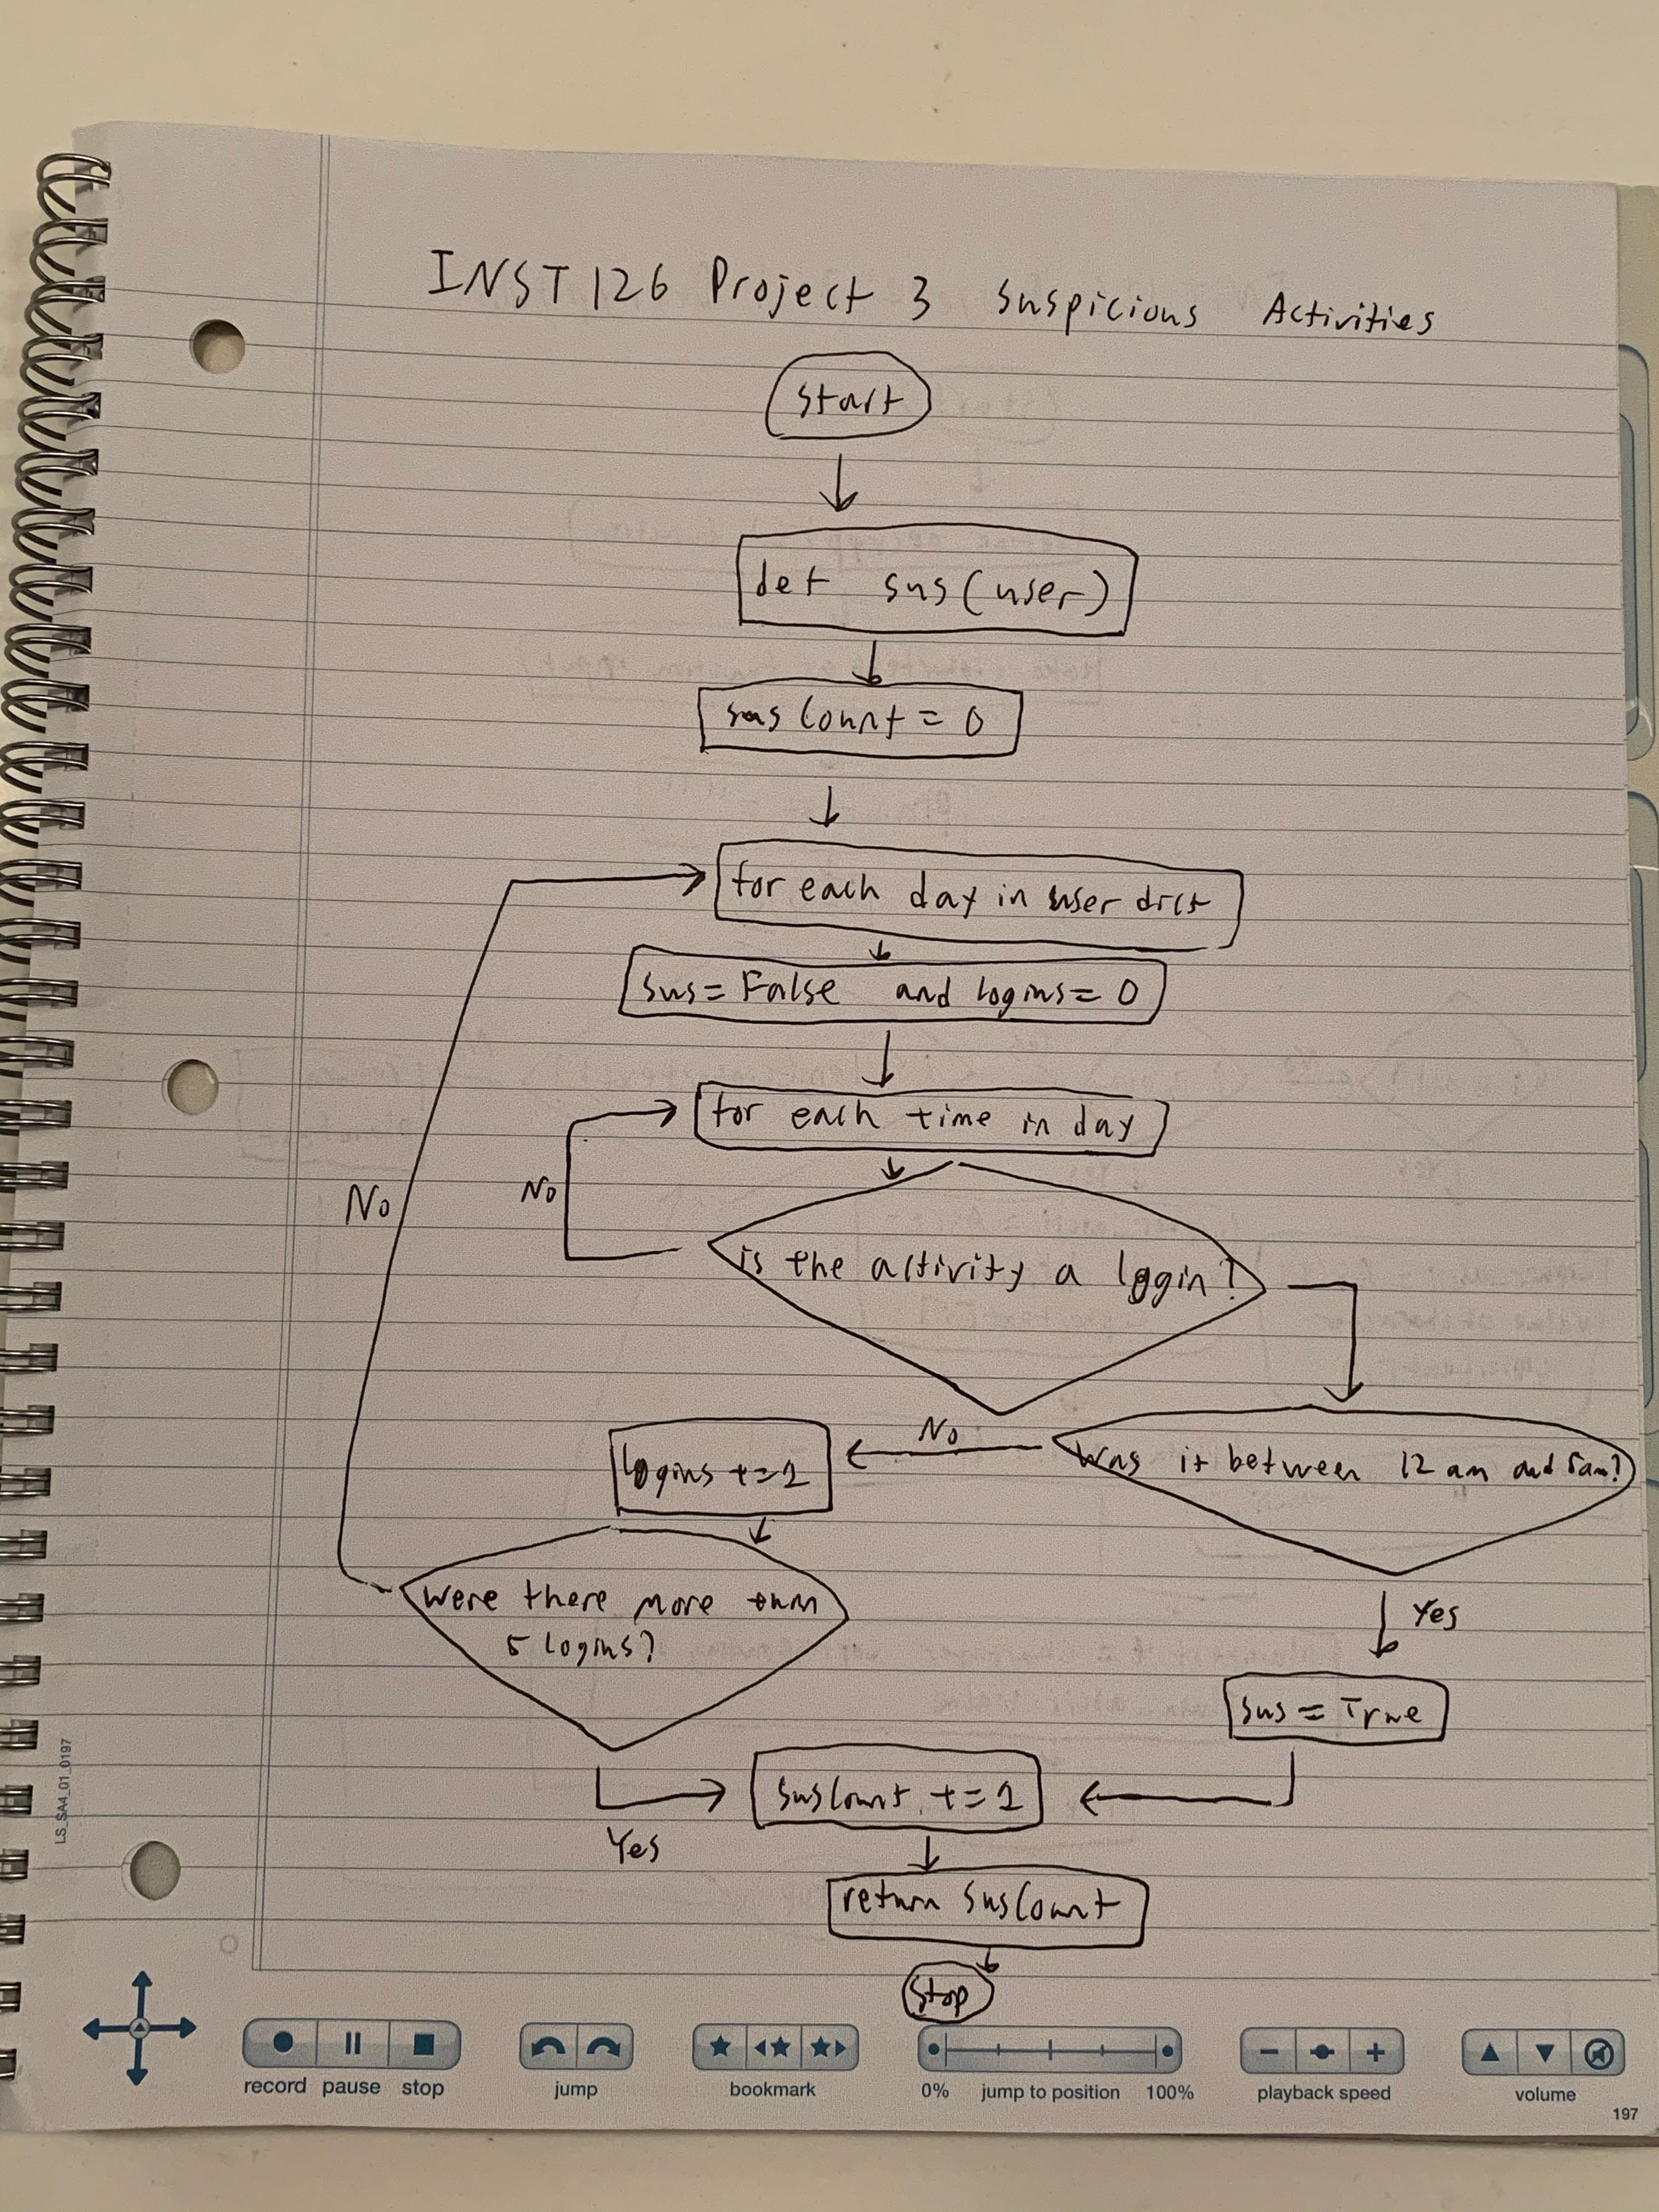 INST126 Project 3 Suspicious Activities
start
def sus(user)
susCount = 0
for each day in user dict
sus=False and logins=0
for each time in day
No
No
is the activity a login?
No
logins +=1
Was it between 12 am and 5am?
Were there more than
5 logins?
Yes
sus = True
susCount +=1
Yes
return susCount
Stop
LS_SA4_01_0197
record pause stop
jump
bookmark
0% jump to position 100%
playback speed
volume
197